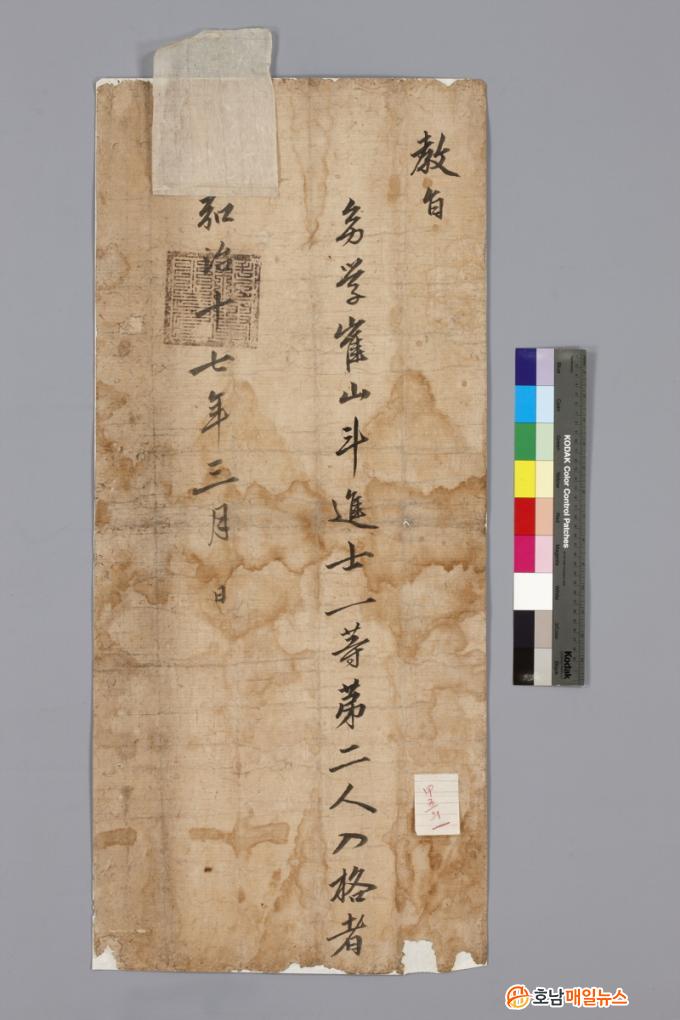 教旨
幼学崔山斗進士一等第二人入格者
弘治十七年三月 日
KODAK Color Control Patches
Kodak
호남매일뉴스